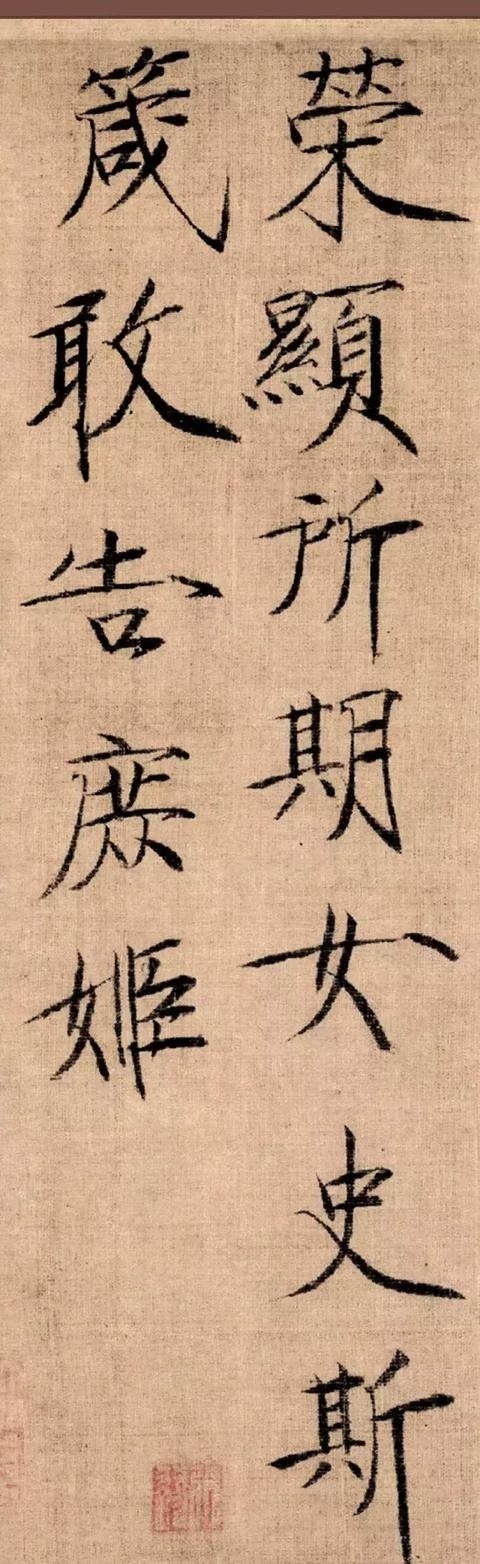 荣顯所期女史斯
箴敢告庶姬